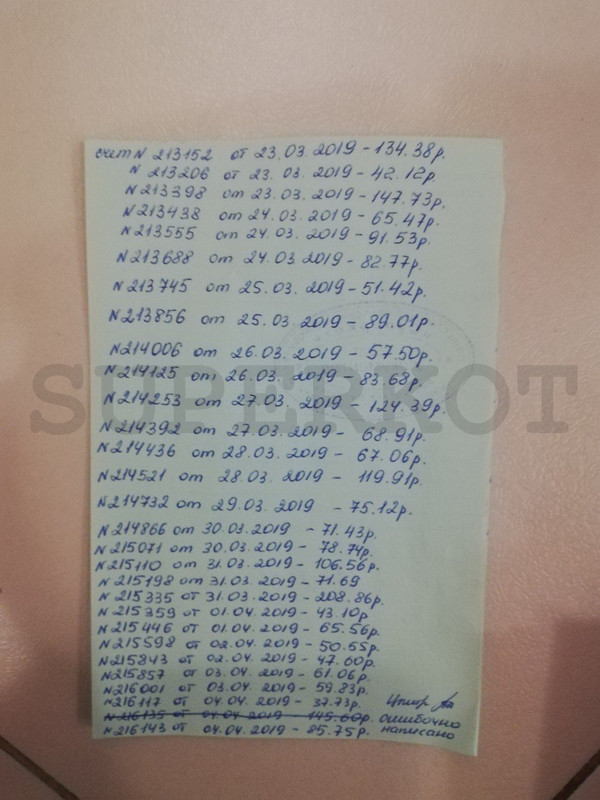 счет N 213152 от 23.03.2019 - 134.38р.
N 213206 от 23.03.2019 - 42.12р.
N 213398 от 23.03.2019 - 147.73р.
N 213438 от 24.03.2019 - 65.47р.
N 213555 от 24.03.2019 - 91.53р.
N 213688 от 24.03.2019 - 82.77р.
N 213745 от 25.03.2019 - 51.42р.
N 213856 от 25.03.2019 - 89.01р.
N 214006 от 26.03.2019 - 57.50р.
N 214125 от 26.03.2019 - 83.68р.
SUPERKOT
N 214253 от 27.03.2019 - 124.39р.
N 214392 от 27.03.2019 - 68.91р.
N 214436 от 28.03.2019 - 67.06р.
N 214521 от 28.03.2019 - 119.91р.
N 214732 от 29.03.2019 - 75.12р.
N 214866 от 30.03.2019 - 71.43р.
N 215071 от 30.03.2019 - 78.74р.
N 215110 от 31.03.2019 - 106.56р.
N 215198 от 31.03.2019 - 71.69
N 215335 от 31.03.2019 - 208.86р.
N 215359 от 01.04.2019 - 43.10р
N 215446 от 01.04.2019 - 65.56р.
N 215598 от 02.04.2019 - 50.55р.
N 215843 от 02.04.2019 - 47.60р.
N 215857 от 03.04.2019 - 61.06р.
N 216001 от 03.04.2019 - 59.83р.
N 216117 от 04.04.2019 - 37.73р.
N 216135 от 04.04.2019 - 145.60р. ошибочно
N 216143 от 04.04.2019 - 85.75р. написано